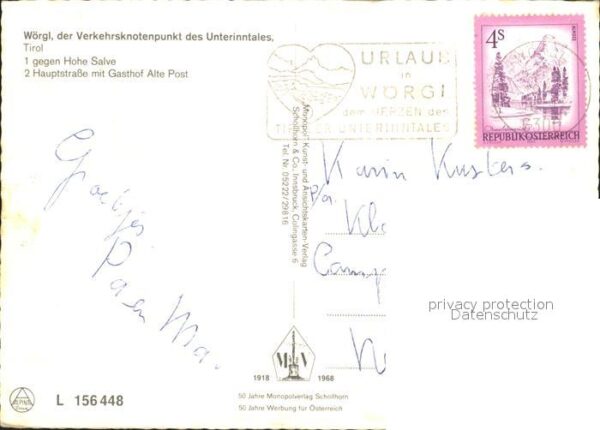 Wörgl, der Verkehrsknotenpunkt des Unterinntales,
Tirol
1 gegen Hohe Salve
2 Hauptstraße mit Gasthof Alte Post
URLAUB
in
WÖRGL
dem HERZEN des
TIROLER UNTERINNTALES
4S
REPUBLIK ÖSTERREICH
Monopol-, Kunst- und Ansichtskarten-Verlag
Schöllhorn & Co., Innsbruck, Colingasse 6
Tel. Nr. 05222/29816
Groetjes
Pa en Ma.
Karin Kusters.
p/a.
privacy protection
Datenschutz
M V
1918 1968
50 Jahre Monopolverlag Schöllhorn
50 Jahre Werbung für Österreich
L 156 448